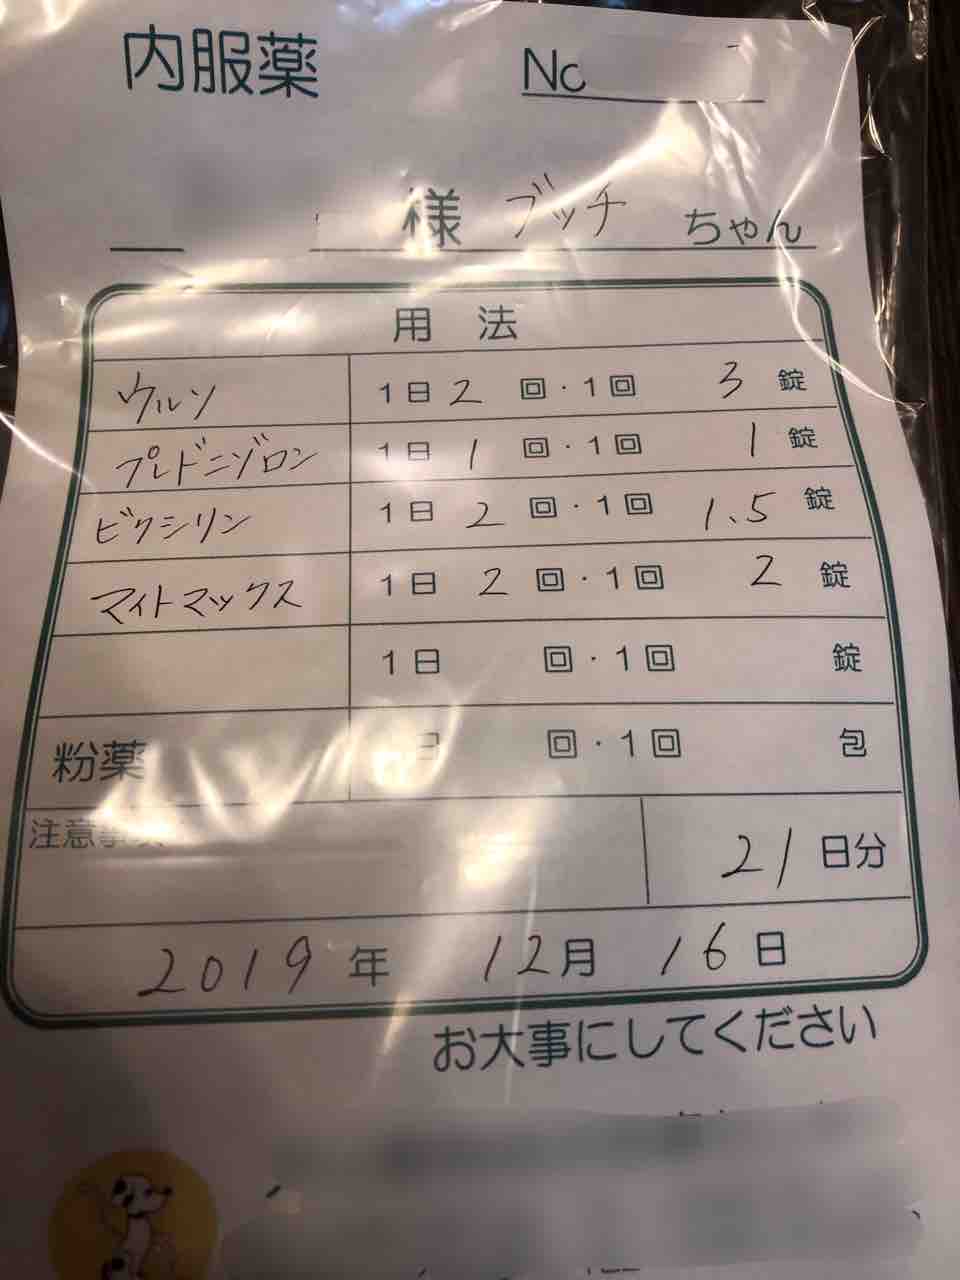 内服薬 No
様 ブッチ ちゃん
用法
ウルソ 1日 2 回・1回 3 錠
プレドニゾロン 1日 1 回・1回 1 錠
ビクシリン 1日 2 回・1回 1.5 錠
マイトマックス 1日 2 回・1回 2 錠
1日 回・1回 錠
粉薬 日 回・1回 包
注意事項 21 日分
2019年 12月 16日
お大事にしてください